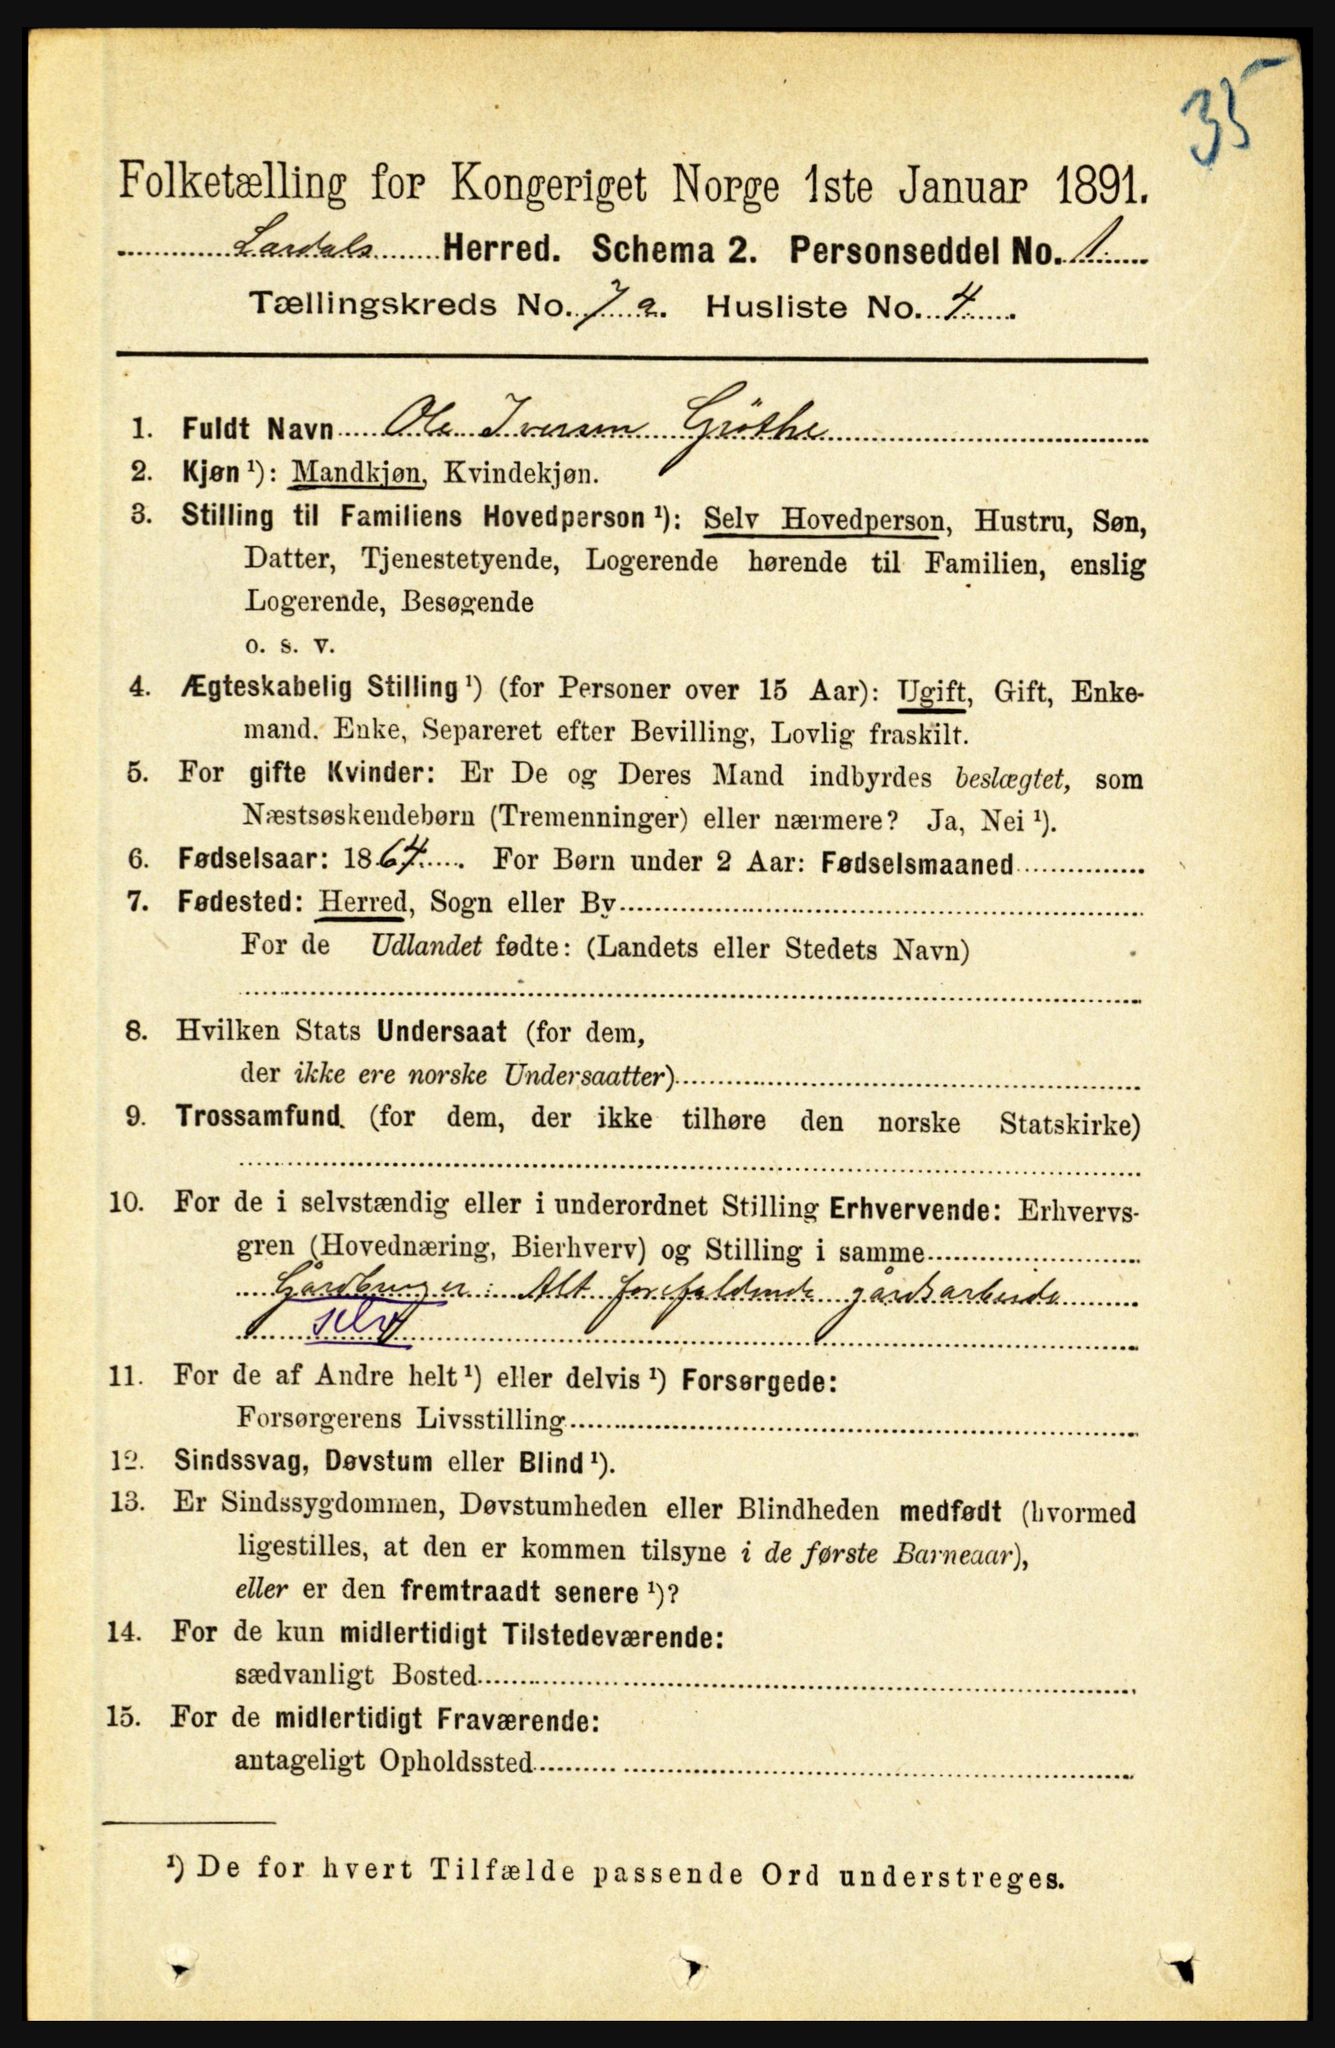 35
Folketælling for Kongeriget Norge 1ste Januar 1891.
Lardals Herred. Schema 2. Personseddel No. 1
Tællingskreds No. 7 a. Husliste No. 4
1. Fuldt Navn Ole Iversen Gröthe
2. Kjøn ¹): Mandkjøn, Kvindekjøn.
3. Stilling til Familiens Hovedperson ¹): Selv Hovedperson, Hustru, Søn,
Datter, Tjenestetyende, Logerende hørende til Familien, enslig
Logerende, Besøgende
o. s. v.
4. Ægteskabelig Stilling ¹) (for Personer over 15 Aar): Ugift, Gift, Enke-
mand. Enke, Separeret efter Bevilling, Lovlig fraskilt.
5. For gifte Kvinder: Er De og Deres Mand indbyrdes beslægtet, som
Næstsøskendebørn (Tremenninger) eller nærmere? Ja, Nei ¹).
6. Fødselsaar: 1864. For Børn under 2 Aar: Fødselsmaaned
7. Fødested: Herred, Sogn eller By
For de Udlandet fødte: (Landets eller Stedets Navn)
8. Hvilken Stats Undersaat (for dem,
der ikke ere norske Undersaatter)
9. Trossamfund. (for dem, der ikke tilhøre den norske Statskirke)
10. For de i selvstændig eller i underordnet Stilling Erhvervende: Erhvervs-
gren (Hovednæring, Bierhverv) og Stilling i samme
Gårdbruger: Alt forefaldende gårdsarbeide
selv
11. For de af Andre helt ¹) eller delvis ¹) Forsørgede:
Forsørgerens Livsstilling
12. Sindssvag, Døvstum eller Blind ¹).
13. Er Sindssygdommen, Døvstumheden eller Blindheden medfødt (hvormed
ligestilles, at den er kommen tilsyne i de første Barneaar),
eller er den fremtraadt senere ¹)?
14. For de kun midlertidigt Tilstedeværende:
sædvanligt Bosted
15. For de midlertidigt Fraværende:
antageligt Opholdssted
¹) De for hvert Tilfælde passende Ord understreges.